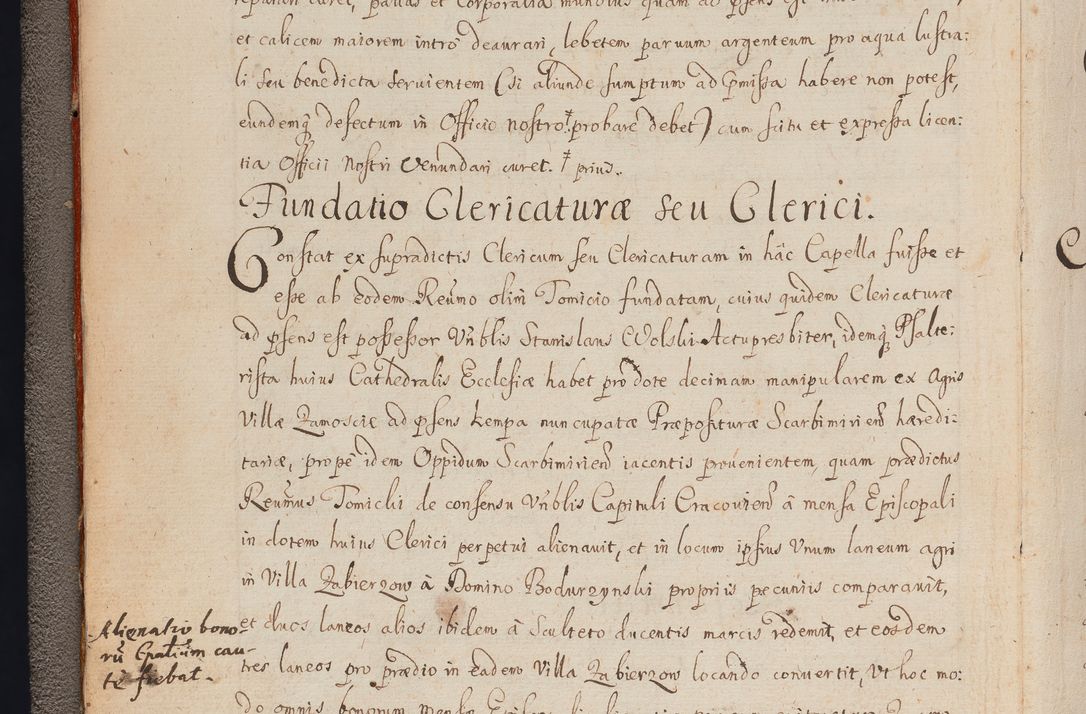 et calicem maiorem intro deaurari, lebetem paruum argenteum pro aqua lustra:
li seu benedicta seruientem (si aliunde sumptum ad pmissa habere non potest,
eundemq defectum in Officio nostro ‡ probare debet) cum scitu et expressa licen:
tia Officii Nostri venundari curet. ‡ prius.
Fundatio Clericaturæ seu Clerici.
Constat ex supradictis Clericum seu Clericaturam in hac Capella fuisse et
esse ab eodem Reumo olim Tomicio fundatam, cuius quidem Clericaturæ
ad psens est possessor Vnblis Stanislaus Wolski Actupresbiter, idemq Psalte:
rista huius Cathedralis Ecclesiæ habet pro dote decimam manipularem ex Agris
Villæ Zamoscie ad psens kempa nuncupatæ Præpositurae Scarbimirien hæredi:
tariæ, prope idem Oppidum Scarbimirien iacentis prouenientem, quam prædictus
Reumus Tomicki de consensu Vnblis Capituli Cracouien à mensa Episcopali
in dotem huius Clerici perpetui alienauit, et in locum ipsius Vnum laneum agri
in Villa Zabierzow à Domino Bodurzynski propriis pecuniis comparauit,
et duos laneos alios ibidem à Sculteto ducentis marcis redemit, et eosdem
tres laneos pro prædio in eadem Villa Zabierzow locando conuertit, Vt hoc mo:
do omnis bonorum mensæ
Alienatio bono-
rū Epaliūm cau-
tè fiebat.